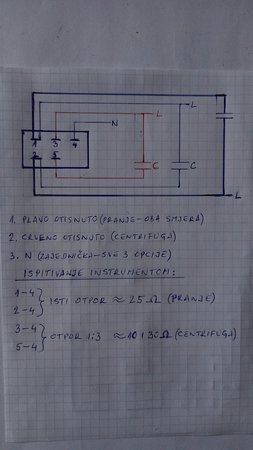 L
L
N
1 3 4
2 5
C
C
L
1. PLAVO OTISNUTO (PRANJE-OBA SMJERA)
2. CRVENO OTISNUTO (CENTRIFUGA)
3. N (ZAJEDNIČKA-SVE 3 OPCIJE)
ISPITIVANJE INSTRUMENTOM:
1-4
2-4
ISTI OTPOR ≈ 25Ω (PRANJE)
3-4
5-4
OTPOR 1:3 ≈ 10 I 30Ω (CENTRIFUGA)